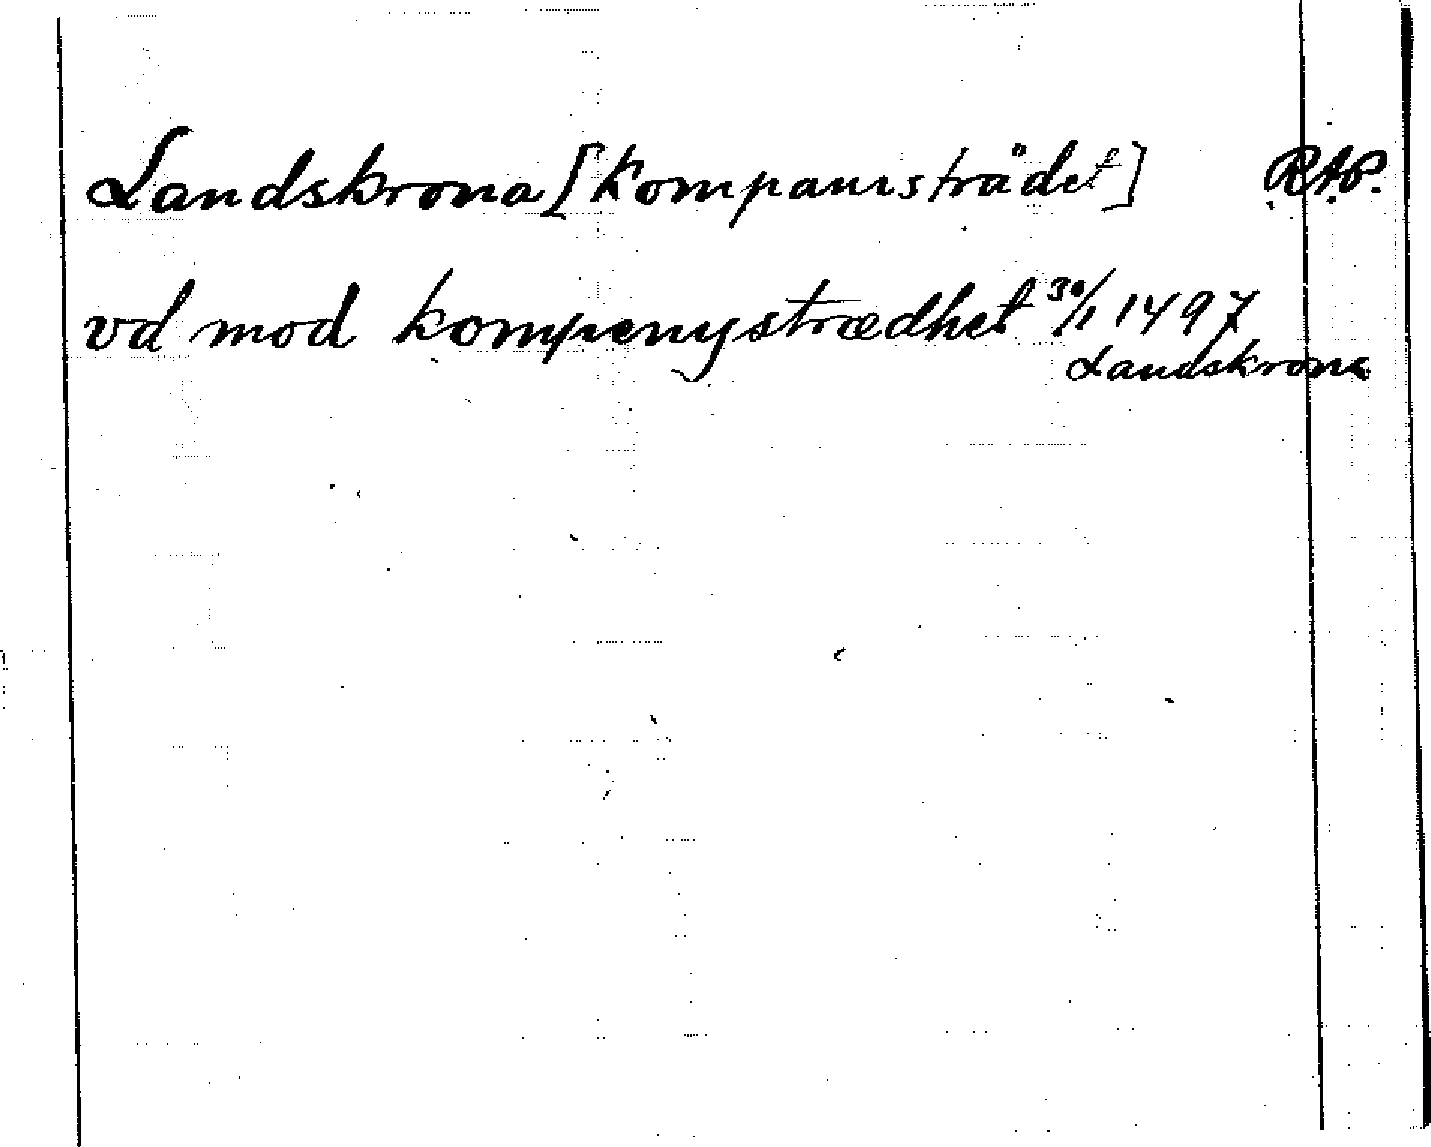 Landskrona [Kompanistrådet] RAP.
vd mod kompenystrædhet 30/1 1497
Landskrona